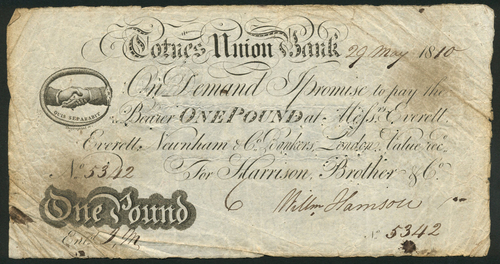 Totnes Union Bank 29 May 1810
On Demand I promise to pay the
QUIS SEPARABIT
Bearer ONE POUND at Mess.rs Everett
Everett, Newnham & Co. Bankers, London, Value rec.d
No. 5342 For Harrison, Brother & Co.
One Pound Willm Harrison
Ent.d
No. 5342